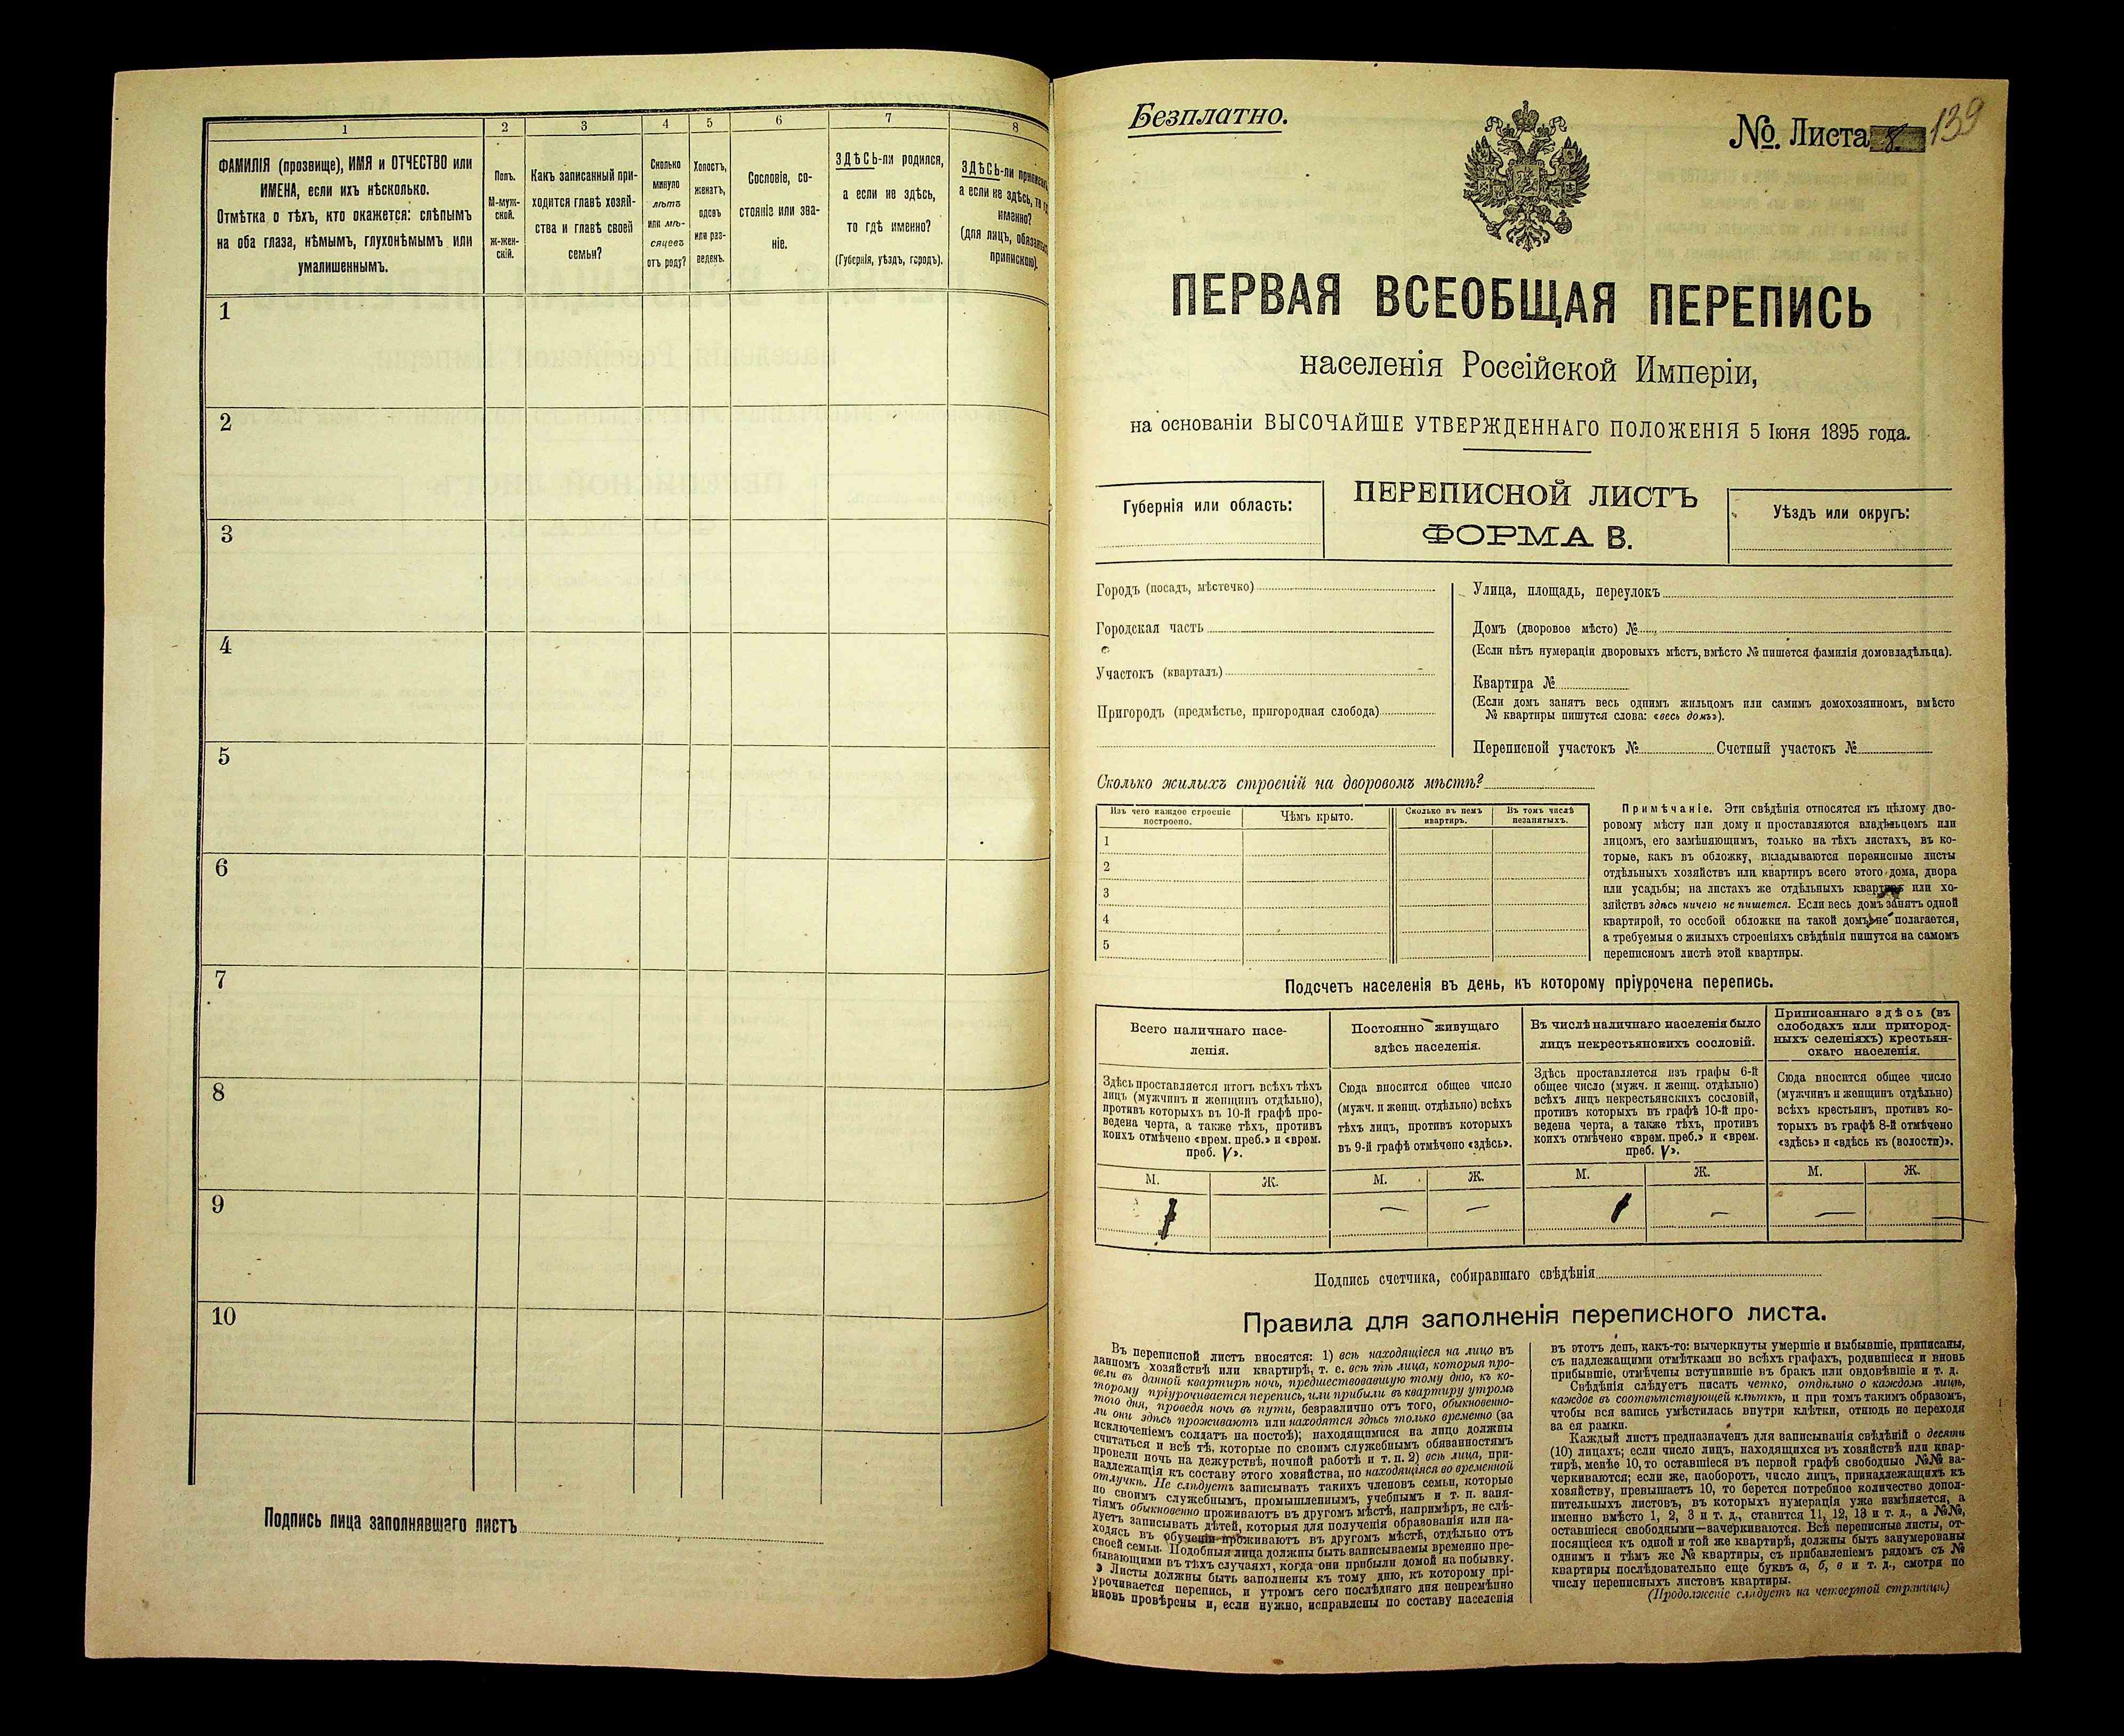 1
2
3
4
5
6
7
8
ФАМИЛІЯ (прозвище), ИМЯ и ОТЧЕСТВО или
ИМЕНА, если ихъ нѣсколько.
Отмѣтка о тѣхъ, кто окажется: слѣпымъ
на оба глаза, нѣмымъ, глухонѣмымъ или
умалишеннымъ.
Полъ.
М-муж-
ской.
ж-жен-
скій.
Какъ записанный при-
ходится главѣ хозяй-
ства и главѣ своей
семьи?
Сколько
минуло
лѣтъ
или мѣ-
сяцевъ
отъ роду?
Холостъ,
женатъ,
вдовъ
или раз-
веденъ.
Сословіе, со-
стояніе или зва-
ніе.
ЗДѢСЬ-ли родился,
а если не здѣсь,
то гдѣ именно?
(Губернія, уѣздъ, городъ).
ЗДѢСЬ-ли
а если не здѣсь, то
именно?
(для лицъ,
припискою).
1
2
3
4
5
6
7
8
9
10
Подпись лица заполнявшаго листъ
Безплатно.
№. Листа 8. 139
ПЕРВАЯ ВСЕОБЩАЯ ПЕРЕПИСЬ
населенія Россійской Имперіи,
на основаніи ВЫСОЧАЙШЕ УТВЕРЖДЕННАГО ПОЛОЖЕНІЯ 5 Іюня 1895 года.
Губернія или область:
ПЕРЕПИСНОЙ ЛИСТЪ
ФОРМА В.
Уѣздъ или округъ:
Городъ (посадъ, мѣстечко)
Городская часть
Участокъ (кварталъ)
Пригородъ (предмѣстье, пригородная слобода)
Улица, площадь, переулокъ
Домъ (дворовое мѣсто) №
(Если нѣтъ нумераціи дворовыхъ мѣстъ, вмѣсто № пишется фамилія домовладѣльца).
Квартира №
(Если домъ занятъ весь однимъ жильцомъ или самимъ домохозяиномъ, вмѣсто
№ квартиры пишутся слова: «весь домъ»).
Переписной участокъ № Счетный участокъ №
Сколько жилыхъ строеній на дворовомъ мѣстѣ?
Изъ чего каждое строеніе
построено.
Чѣмъ крыто.
Сколько въ немъ
квартиръ.
Въ томъ числѣ
незанятыхъ.
1
2
3
4
5
Примѣчаніе. Эти свѣдѣнія относятся къ цѣлому дво-
ровому мѣсту или дому и проставляются владѣльцемъ или
лицомъ, его замѣняющимъ, только на тѣхъ листахъ, въ ко-
торые, какъ въ обложку, вкладываются переписные листы
отдѣльныхъ хозяйствъ или квартиръ всего этого дома, двора
или усадьбы; на листахъ же отдѣльныхъ квартиръ или хо-
зяйствъ здѣсь ничего не пишется. Если весь домъ занятъ одной
квартирой, то особой обложки на такой домъ не полагается,
а требуемыя о жилыхъ строеніяхъ свѣдѣнія пишутся на самомъ
переписномъ листѣ этой квартиры.
Подсчетъ населенія въ день, къ которому пріурочена перепись.
Всего наличнаго насе-
ленія.
Постоянно живущаго
здѣсь населенія.
Въ числѣ наличнаго населенія было
лицъ некрестьянскихъ сословій.
Приписаннаго здѣсь (въ
слободахъ или пригород-
ныхъ селеніяхъ) крестьян-
скаго населенія.
Здѣсь проставляется итогъ всѣхъ тѣхъ
лицъ (мужчинъ и женщинъ отдѣльно),
противъ которыхъ въ 10-й графѣ про-
ведена черта, а также тѣхъ, противъ
коихъ отмѣчено «врем. преб.» и «врем.
преб. V».
Сюда вносится общее число
(мужч. и женщ. отдѣльно) всѣхъ
тѣхъ лицъ, противъ которыхъ
въ 9-й графѣ отмѣчено «здѣсь».
Здѣсь проставляется изъ графы 6-й
общее число (мужч. и женщ. отдѣльно)
всѣхъ лицъ некрестьянскихъ сословій,
противъ которыхъ въ графѣ 10-й про-
ведена черта, а также тѣхъ, противъ
коихъ отмѣчено «врем. преб.» и «врем.
преб. V».
Сюда вносится общее число
(мужчинъ и женщинъ отдѣльно)
всѣхъ крестьянъ, противъ ко-
торыхъ въ графѣ 8-й отмѣчено
«здѣсь» и «здѣсь къ (волости)».
М. Ж. М. Ж. М. Ж. М. Ж.
1 — — 1 — — —
Подпись счетчика, собиравшаго свѣдѣнія
Правила для заполненія переписного листа.
Въ переписной листъ вносятся: 1) всѣ находящіеся на лицо въ
данномъ хозяйствѣ или квартирѣ, т. е. всѣ тѣ лица, которыя про-
вели въ данной квартирѣ ночь, предшествовавшую тому дню, къ ко-
торому пріурочивается перепись, или прибыли въ квартиру утромъ
того дня, проведя ночь въ пути, безразлично отъ того, обыкновенно-
ли они здѣсь проживаютъ или находятся здѣсь только временно (за
исключеніемъ солдатъ на постоѣ); находящимися на лицо должны
считаться и всѣ тѣ, которые по своимъ служебнымъ обязанностямъ
провели ночь на дежурствѣ, ночной работѣ и т. п. 2) всѣ лица, при-
надлежащія къ составу этого хозяйства, но находящіяся во временной
отлучкѣ. Не слѣдуетъ записывать такихъ членовъ семьи, которые
по своимъ служебнымъ, промышленнымъ, учебнымъ и т. п. заня-
тіямъ обыкновенно проживаютъ въ другомъ мѣстѣ, напримѣръ, не слѣ-
дуетъ записывать дѣтей, которыя для полученія образованія или на-
ходясь въ обученіи проживаютъ въ другомъ мѣстѣ, отдѣльно отъ
своей семьи. Подобныя лица должны быть записываемы временно пре-
бывающими въ тѣхъ случаяхъ, когда они прибыли домой на побывку.
Листы должны быть заполнены къ тому дню, къ которому прі-
урочивается перепись, и утромъ сего послѣдняго дня непремѣнно
вновь провѣрены и, если нужно, исправлены по составу населенія
въ этотъ день, какъ-то: вычеркнуты умершіе и выбывшіе, приписаны,
съ надлежащими отмѣтками во всѣхъ графахъ, родившіеся и вновь
прибывшіе, отмѣчены вступившіе въ бракъ или овдовѣвшіе и т. д.
Свѣдѣнія слѣдуетъ писать четко, отдѣльно о каждомъ лицѣ,
каждое въ соотвѣтствующей клѣткѣ, и при томъ такимъ образомъ,
чтобы вся запись умѣстилась внутри клѣтки, отнюдь не переходя
за ея рамки.
Каждый листъ предназначенъ для записыванія свѣдѣній о десяти
(10) лицахъ; если число лицъ, находящихся въ хозяйствѣ или квар-
тирѣ, менѣе 10, то оставшіеся въ первой графѣ свободные №№ за-
черкиваются; если же, наоборотъ, число лицъ, принадлежащихъ къ
хозяйству, превышаетъ 10, то берется потребное количество допол-
нительныхъ листовъ, въ которыхъ нумерація уже измѣняется, а
именно вмѣсто 1, 2, 3 и т. д., ставится 11, 12, 13 и т. д., а №№,
оставшіеся свободными—зачеркиваются. Всѣ переписные листы, от-
носящіеся къ одной и той же квартирѣ, должны быть занумерованы
однимъ и тѣмъ же № квартиры, съ прибавленіемъ рядомъ съ №
квартиры послѣдовательно еще буквъ а, б, в и т. д., смотря по
числу переписныхъ листовъ квартиры.
(Продолженіе слѣдуетъ на четвертой страницѣ)